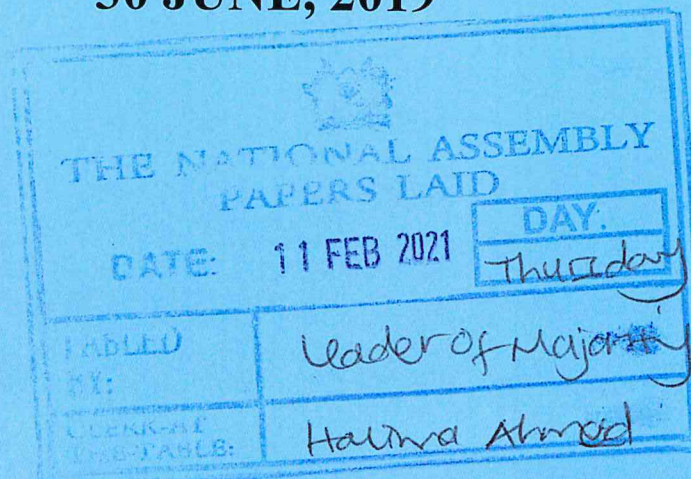 30 JUNE, 2019
THE NATIONAL ASSEMBLY
PAPERS LAID
DATE: 11 FEB 2021
DAY:
Thursday
TABLED
BY:
Leader of Majority
CLERK-AT
THE-TABLE:
Halima Ahmed